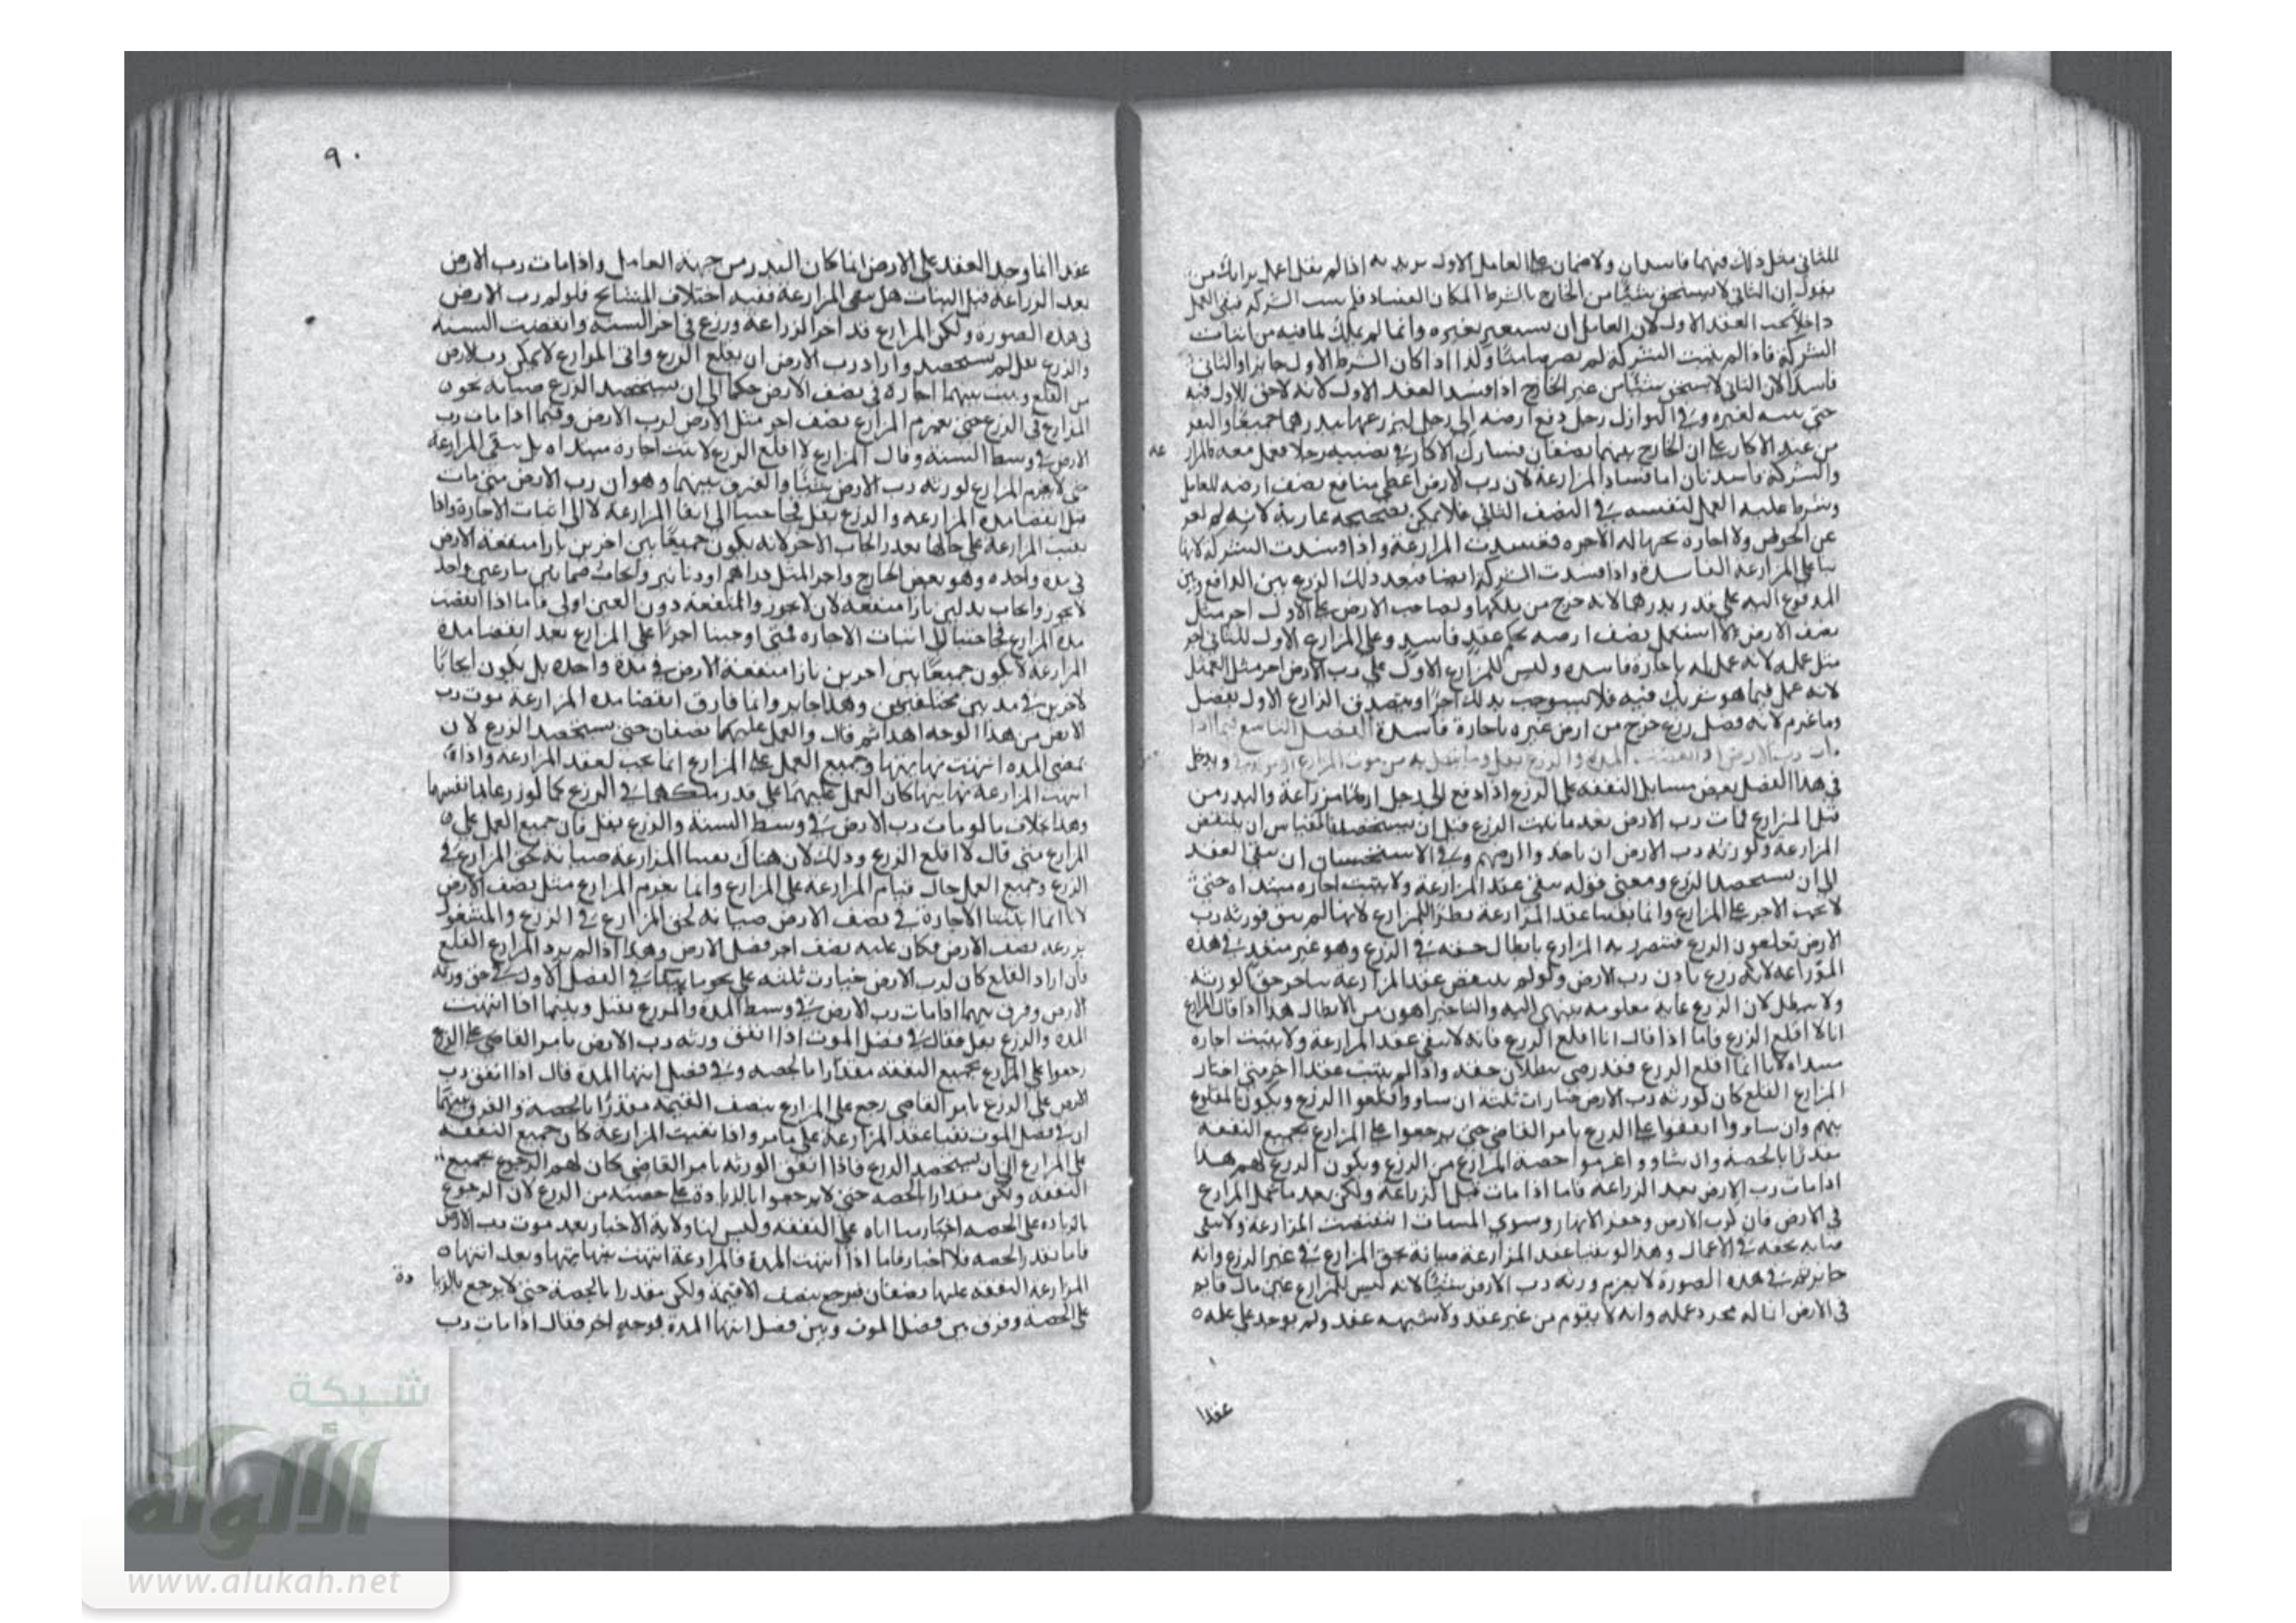 للثاني مثل ذلك فهما فاسدان ولا ضمان على العامل الاول يريد به اذا لم يقل اعمل برايك من
يقول ان الثاني لا يستحق شيئا من الخارج بالشرط لمكان الفساد فلم يثبت الشركة فبقي العمل
داخلا تحت العقد الاول لان العامل ان يستعين بغيره وانما لم يملك لما فيه من اثبات
الشركة فاذا لم يثبت الشركة لم يصر ضامنا وكذا اذا كان الشرط الاول جايزا والثاني
فاسدا لان الثاني لا يستحق شيئا من عين الخارج اذا فسد العقد الاول لانه لا حق للاول فيه
حتى لغيره وفي النوازل رجل دفع ارضه الى رجل ليزرعها ببذرهما جميعا والبقر
من عند الاكار على ان الخارج بينهما نصفان فشارك الاكار في نصيبه رجلا فعمل معه فالمزارعه
والشركة فاسدتان اما فساد المزارعة لان رب الارض اعطى منافع نصف ارضه للعامل
وشرط عليه العمل لنفسه في النصف الثاني فلا يمكن تصحيحه عارية لانه لم يعر
عن العوض ولا اجارة لجهالة الاجره ففسدت المزارعة واذا فسدت الشركة لانها
بنا على المزارعة الفاسدة واذا فسدت الشركة ايضا فبعد ذلك الزرع بين الدافع وبين
المدفوع اليه على قدر بذرهما لانه خرج من ملكهما ولصاحب الارض على الاول اجر مثل
نصف الارض لانه استعمل نصف ارضه بحكم عقد فاسد وعلى المزارع الاول للثاني اجر
مثل عمله لانه عمل له باجارة فاسدة وليس للمزارع الاول على رب الارض اجر مثل العمل
لانه عمل فيما هو شريك فيه فلا يستوجب بذلك اجرا ويتصدق الزارع الاول بفضل
وما غرم لانه فضل زرع خرج من ارض غيره باجارة فاسدة الفصل التاسع فيما اذا
مات رب الارض او انقضت المدة والزرع بقل وما يتصل به من موت المزارع ويدخل
في هذا الفصل بعض مسايل النفقه على الزرع اذا دفع الى رجل ارضا مزارعة والبذر من
قبل المزارع فمات رب الارض بعد ما نبت الزرع قبل ان يستحصد فالقياس ان ينتقض
المزارعة ولورثة رب الارض ان ياخذوا ارضهم وفي الاستحسان ان يبقى العقد
الى ان يستحصد الزرع ومعنى قوله يبقى عقد المزارعة ولا يثبت اجاره مبتداه حتى
لا يجب الاجر على المزارع وانما بقينا عقد المزارعة نظرا للمزارع لانها لم يبق فورثه رب
الارض يقلعون الزرع فيتضرر به المزارع بابطال حقه في الزرع وهو غير متعد في هذه
المزارعه لانه زرع باذن رب الارض ولو لم ينتقض عقد المزارعة يتاخر حق الورثه
ولا يبطل لان الزرع غاية معلومه ينتهي اليه والتاخير اهون من الابطال هذا اذا قال المزارع
انا لا اقلع الزرع فاما اذا قال انا اقلع الزرع فانه لا يبقى عقد المزارعة ولا يثبت اجاره
مبتداه لانا انما اقلع الزرع فقد رضي ببطلان حقه واذا لم يثبت عقدا اخر متى اختار
المزارع القلع كان لورثه رب الارض خيارات ثلثة ان شاوا قلعوا الزرع ويكون المقلوع
بينهم وان شاوا انفقوا على الزرع بامر القاضي حتى يرجعوا على المزارع بجميع النفقه
مقدرا بالحصه وان شاوا غرموا حصة المزارع من الزرع ويكون الزرع لهم هذا
اذا مات رب الارض بعد الزراعه فاما اذا مات قبل الزراعة ولكن بعد ما عمل المزارع
في الارض فان كرب الارض وحفر الانهار وسوي المسناة انتقضت المزارعة ولا يبقى
صيانه لحقه في الاعمال وهذا لو بقينا عقد المزارعة صيانة لحق المزارع في غير الزرع وانه
جايز ثم في هذه الصورة لا يغرم ورثه رب الارض شيئا لانه ليس للمزارع عين مال قايم
في الارض انما له مجرد عمله وانه لا يتقوم من غير عقد ولا شبهه عقد ولم يوجد على عمله
عقدا
٩٠
عقدا انما وجد العقد على الارض انما كان البذر من جهة العامل واذا مات رب الارض
بعد الزراعة قبل النبات هل يبقى المزارعة ففيه اختلاف المشايخ فلو لم رب الارض
في هذه الصورة ولكن المزارع قد اخر الزراعة وزرع في اخر السنه وانقضت السنه
والزرع بقل لم يستحصد واراد رب الارض ان يقلع الزرع وابى المزارع لا يمكن رب الارض
من القلع ويثبت بينهما اجارة في نصف الارض حكما الى ان يستحصد الزرع صيانة لحق
المزارع في الزرع حتى يغرم المزارع نصف اجر مثل الارض لرب الارض وفيما اذا مات رب
الارض في وسط السنة وقال المزارع لا اقلع الزرع لا يثبت اجاره مبتداه بل يبقى المزارعة
حتى لا يغرم المزارع لورثه رب الارض شيئا والفرق بينهما وهو ان رب الارض متى مات
قبل انقضا مدة المزارعه والزرع بقل فحاجتنا الى ابقا المزارعة لا الى اثبات الاجارة واذا
بقيت المزارعة على حالها تعذر ايجاب الاجر لانه يكون جميعا بين اجرين بازا منفعة الارض
في مدة واحده وهو بعض الخارج واجر المثل دراهم او دنانير وايجاب ضمانين بازا عين واحد
لا يجوز وايجاب بدلين بازا منفعة لان لا يجوز والمنفعة دون العين اولى فاما اذا انقضت
مدة المزارع فحاجتنا الى اثبات الاجاره فمتى اوجبنا اجرا على المزارع بعد انقضا مدة
المزارعة لا يكون جميعا بين اجرين بازا منفعة الارض في مدة واحده بل يكون ايجابا
لاجرين في مدتين مختلفتين وهذا جايز وانما فارق انقضا مده المزارعة موت رب
الارض من هذا الوجه لهذا ثم قال والعمل عليهما نصفان حتى يستحصد الزرع لان
بمضي المدة انتهت نهايتها وجميع العمل على المزارع انما يجب لعقد المزارعة واذا
انتهت المزارعة نهايتها كان العمل عليهما على قدر ملكهما في الزرع كما لو زرعاه بانفسهما
وهذا بخلاف ما لو مات رب الارض في وسط السنة والزرع بقل فان جميع العمل على
المزارع متى قال لا اقلع الزرع وذلك لان هناك بقينا المزارعة صيانة لحق المزارع في
الزرع وجميع العمل حال قيام المزارعة على المزارع وانما يغرم المزارع مثل نصف الارض
لانا انما اثبتنا الاجارة في نصف الارض صيانة لحق المزارع في الزرع والمشغول
بزرعه نصف الارض فكان عليه نصف اجر فضل الارض وهذا اذا لم يرد المزارع القلع
فان اراد القلع كان لرب الارض خيارات ثلثه على نحو ما بينا في الفصل الاول في حق ورثه
الارض وفرق بينهما اذا مات رب الارض في وسط المدة والزرع بقل وبينما اذا انتهت
المده والزرع بقل فقال في فصل الموت اذا انفق ورثه رب الارض بامر القاضي على الزرع
رجعوا على المزارع بجميع النفقه مقدرا بالحصه وفي فصل انتها المدة قال اذا انفق رب
الارض على الزرع بامر القاضي رجع على المزارع بنصف القيمه مقدرا بالحصه والفرق بينهما
ان في فصل الموت بقينا عقد المزارعة على ما مر واذا بقيت المزارعة كان جميع النفقه
على المزارع الى ان يستحصد الزرع فاذا انفق الورثه بامر القاضي كان لهم الرجوع بجميع
النفقه ولكن مقدارا بالحصه حتى لا يرجعوا بالزيادة على حصته من الزرع لان الرجوع
بالزياده على الحصه اجبار منا اياه على النفقه وليس لنا ولاية الاجبار بعد موت رب الارض
فاما بقدر الحصه فلا اجبار فاما اذا انتهت المدة فالمزارعة انتهت نهايتها وبعد انتهاء
المزارعة النفقه عليهما نصفان فيرجع بنصف القيمة ولكن مقدرا بالحصة حتى لا يرجع بالزيادة
على الحصه وفرق بين فصل الموت وبين فصل انتها المدة بوجه اخر فقال اذا مات رب
شبكة
الألوكة
www.alukah.net